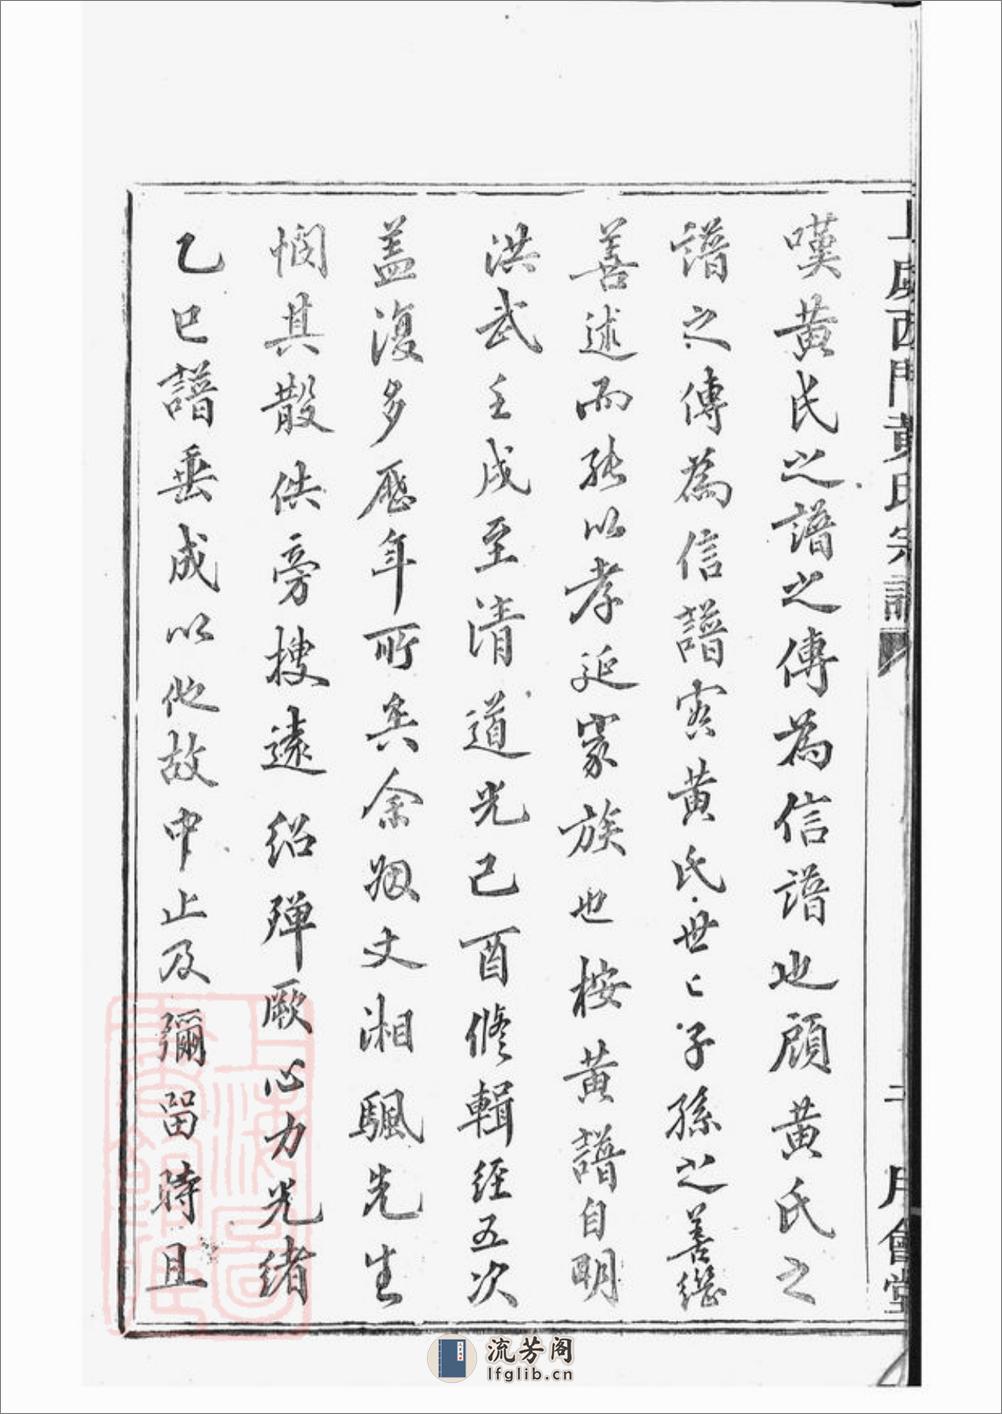 嘆黃氏之譜之傳為信譜也顧黃氏之
譜之傳為信譜實黃氏世〻子孫之善繼
善述而能以孝延家族也按黃譜自明
洪武壬戌至清道光己酉修輯經五次
蓋復多歷年所矣余姻丈湘颿先生
憫其散佚旁搜遠紹殫厥心力光緒
乙巳譜垂成以他故中止及彌留時且
上虞西門黃氏宗譜
月會堂
上海圖書館藏
流芳阁
lfglib.cn